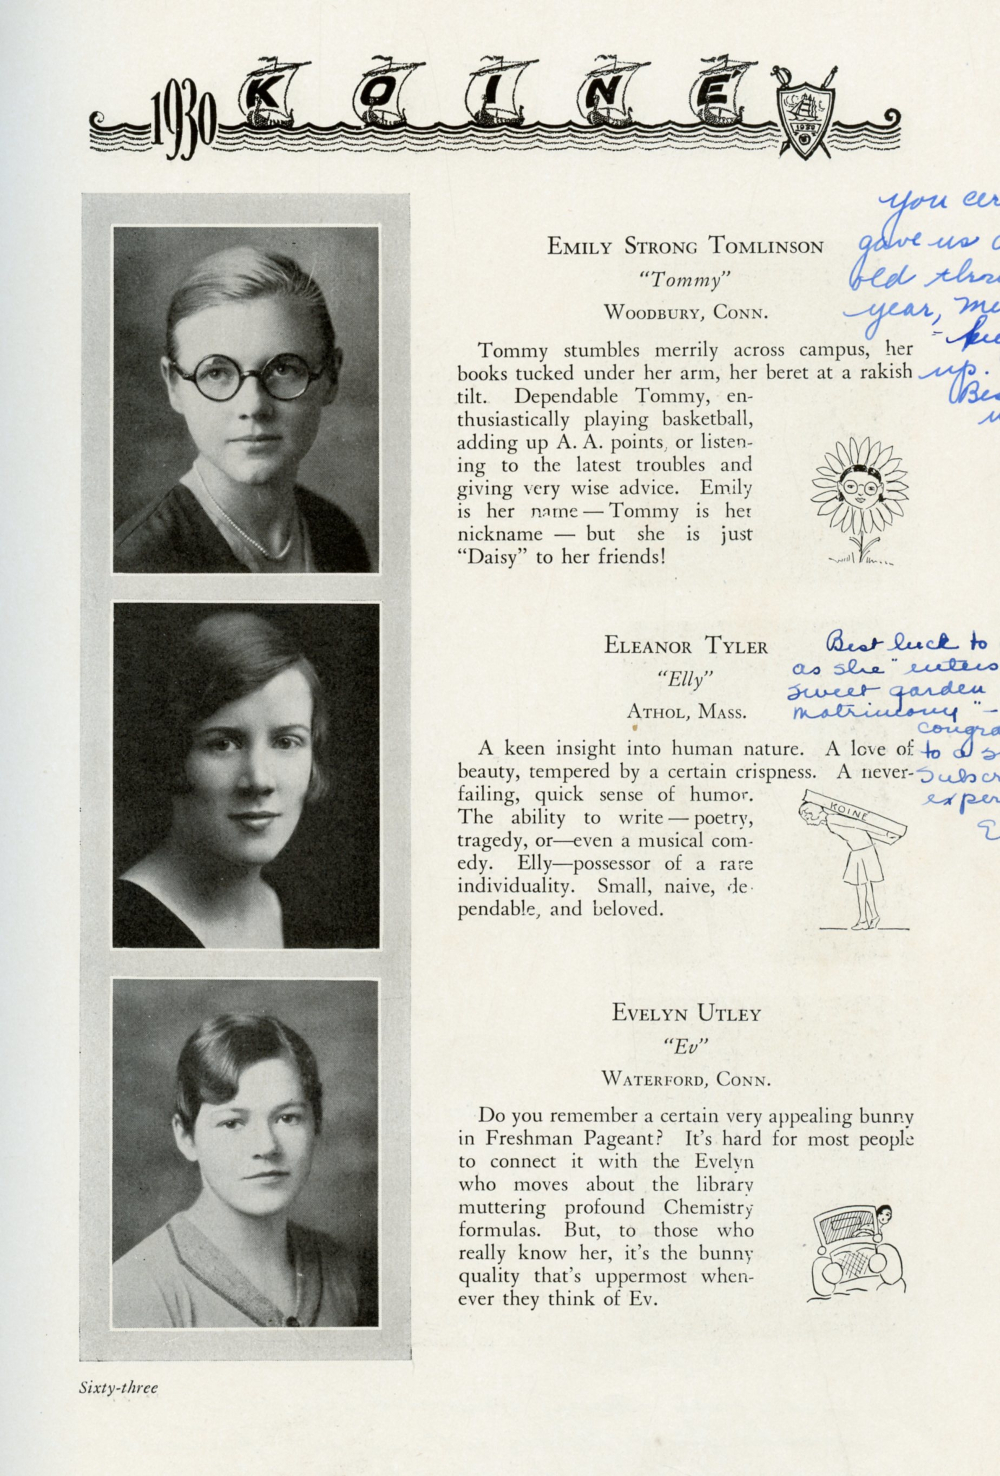 1930 KOINÉ
1930
you cer
gave us
old thro
year,
up.
Bes
EMILY STRONG TOMLINSON
"Tommy"
WOODBURY, CONN.
Tommy stumbles merrily across campus, her
books tucked under her arm, her beret at a rakish
tilt. Dependable Tommy, en-
thusiastically playing basketball,
adding up A. A. points, or listen-
ing to the latest troubles and
giving very wise advice. Emily
is her name — Tommy is her
nickname — but she is just
"Daisy" to her friends!
ELEANOR TYLER
"Elly"
ATHOL, MASS.
Best luck to
as she "enters
sweet garden
matrimony" –
congra
to a s
Subscr
exper
E
A keen insight into human nature. A love of
beauty, tempered by a certain crispness. A never-
failing, quick sense of humor.
The ability to write — poetry,
tragedy, or—even a musical com-
edy. Elly—possessor of a rare
individuality. Small, naive, de-
pendable, and beloved.
KOINE
EVELYN UTLEY
"Ev"
WATERFORD, CONN.
Do you remember a certain very appealing bunny
in Freshman Pageant? It's hard for most people
to connect it with the Evelyn
who moves about the library
muttering profound Chemistry
formulas. But, to those who
really know her, it's the bunny
quality that's uppermost when-
ever they think of Ev.
Sixty-three